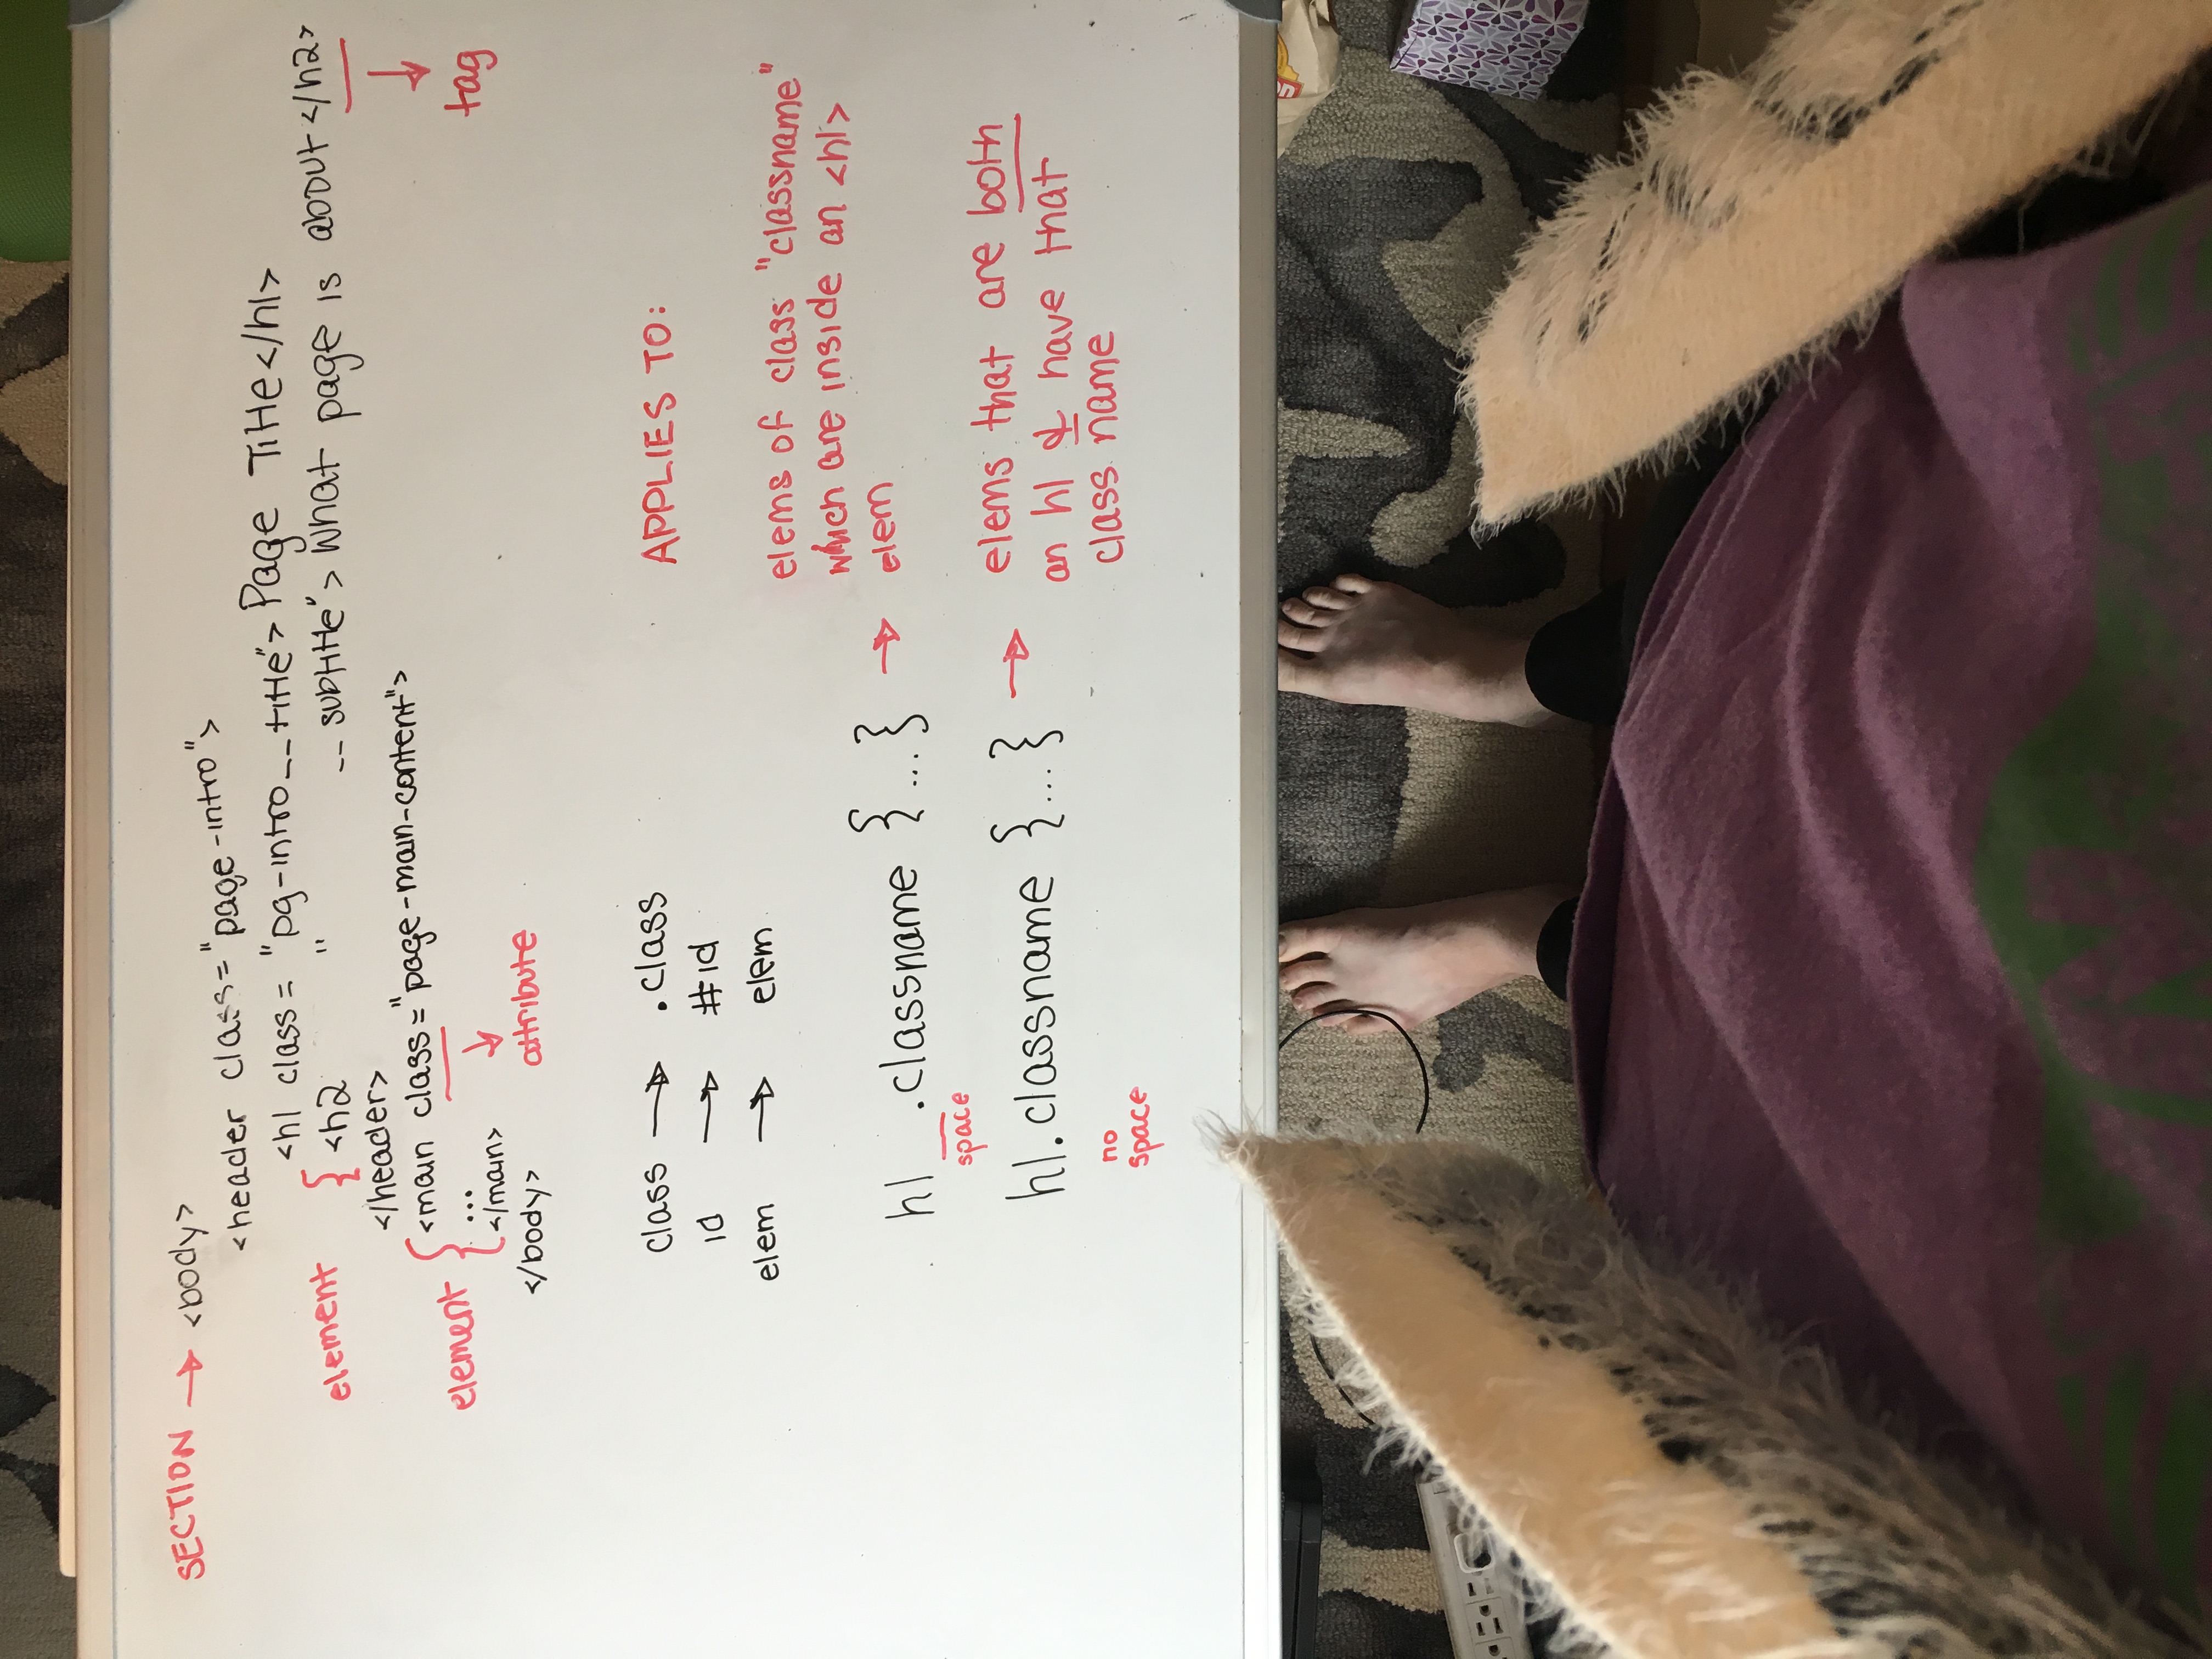 SECTION → <body>
<header class="page-intro">
<h1 class="pg-intro__title">Page Title</h1>
element { <h2 " __subtitle">What page is about</h2>
</header>
tag
element { <main class="page-main-content">
...
</main>
attribute
</body>
class → .class
id → #id
elem → elem
APPLIES TO:
elems of class "classname"
which are inside an <h1>
elem
h1 .classname {...} →
space
elems that are both
an h1 & have that
class name
h1.classname {...} →
no
space